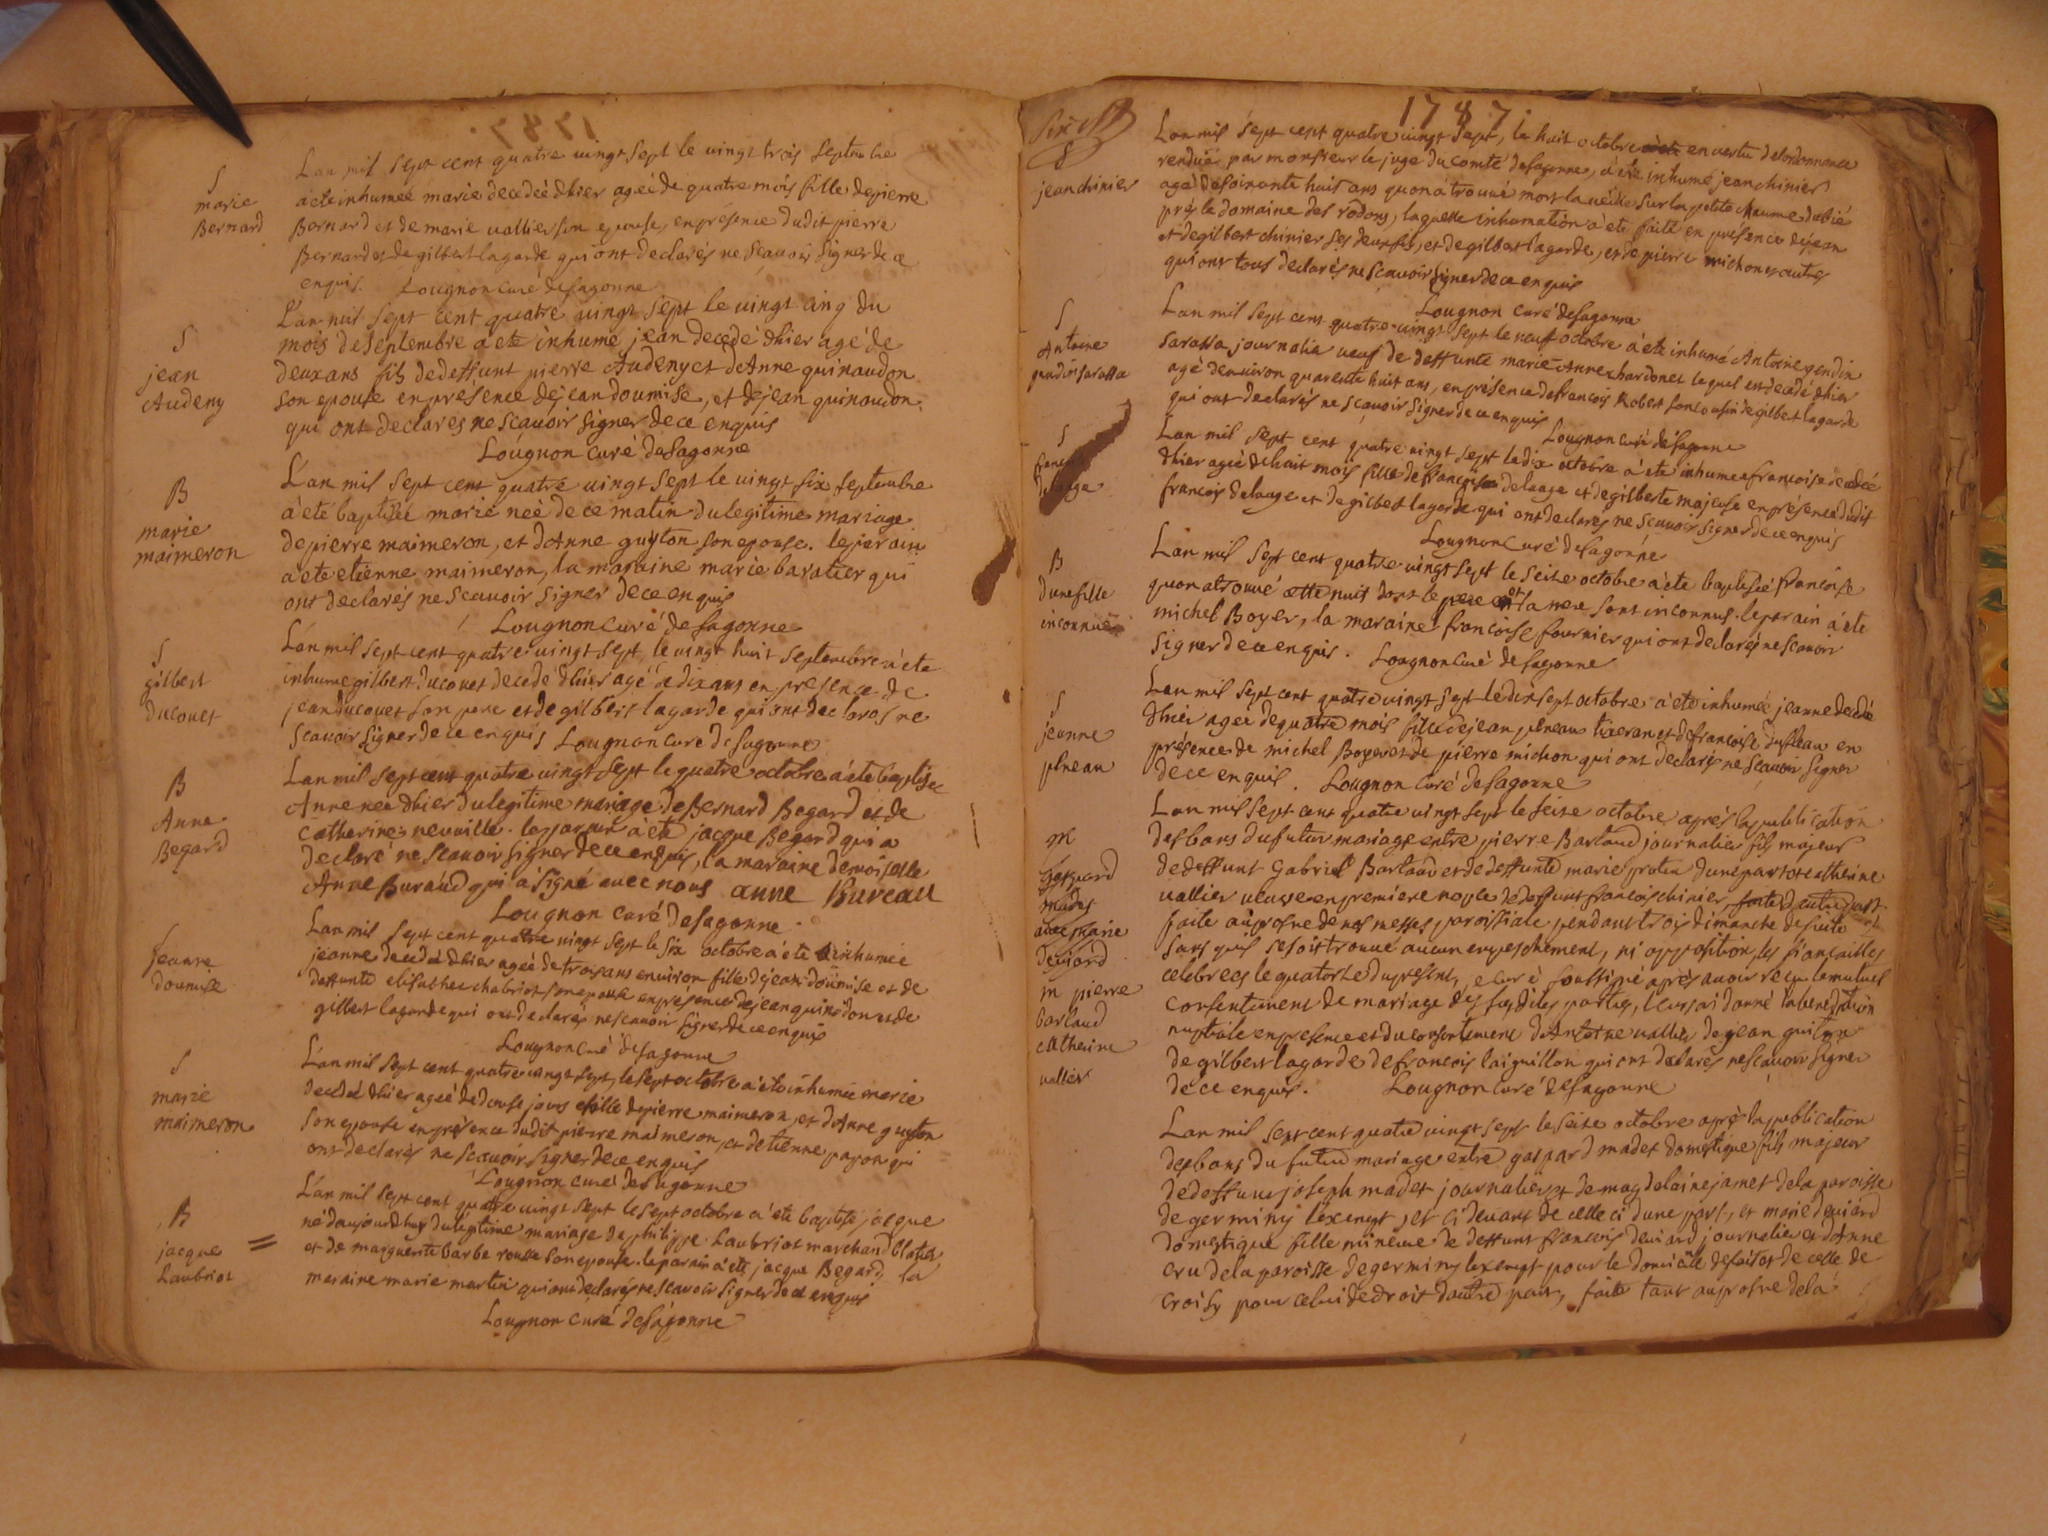 S
marie
Bernard
L'an mil sept cent quatre vingt sept le vingt trois septembre
a eté inhumée marie decedeé dhier ageé de quatre mois fille de pierre
Bernard et de marie vallier son epouse, en présence dudit pierre
Bernard et de gilbert lagarde qui ont declarés ne scavoir signer de ce
enquis. Lougnon curé de sagonne
S
jean
Audeny
L'an mil sept cent quatre vingt sept le vingt cinq du
mois de septembre a eté inhumé jean decedé dhier agé de
deux ans fils de deffunt pierre Audeny et d'Anne quinaudon
son epouse en présence de jean doumise, et de jean quinaudon
qui ont declarés ne scavoir signer de ce enquis
Lougnon curé de sagonne
B
marie
maimeron
L'an mil sept cent quatre vingt sept le vingt six septembre
a eté baptiseé marie neé de ce matin du legitime mariage
de pierre maimeron, et d'Anne guyton son epouse. le parain
a eté etienne maimeron, la maraine marie baratier qui
ont declarés ne scavoir signer de ce enquis
Lougnon curé de sagonne
S
gilbert
ducouet
L'an mil sept cent quatre vingt sept, le vingt huit septembre a eté
inhumé gilbert ducouet decedé dhier agé de dix ans en presence de
jean ducouet son pere et de gilbert lagarde qui ont declarés ne
scavoir signer de ce enquis Lougnon curé de sagonne
B
Anne
Begard
L'an mil sept cent quatre vingt sept le quatre octobre a eté baptiseé
Anne neé dhier du legitime mariage de Bernard Begard et de
Catherine neuville. le parain a eté jacque Begard qui a
declaré ne scavoir signer de ce enquis, la maraine demoiselle
Anne Buraud qui a signé avec nous anne Bureau
Lougnon curé de sagonne
jeanne
doumise
L'an mil sept cent quatre vingt sept le six octobre a eté inhumée
jeanne decedeé dhier ageé de trois ans environ fille de jean doumise et de
deffunte elisabhee chabriot son epouse en presence de jean quinodon et de
gilbert lagarde qui ont declarés ne scavoir signer de ce enquis
Lougnon curé de sagonne
S
marie
maimeron
L'an mil sept cent quatre vingt sept, le sept octobre a eté inhumée marie
decedeé dhier ageé de douse jours fille de pierre maimeron, et d'Anne guyton
son epouse en présence dudit pierre maimeron, et d'etienne payon qui
ont declarés ne scavoir signer de ce enquis
Lougnon curé de sagonne
B
jacque
Laubriot
L'an mil sept cent quatre vingt sept le sept octobre a eté baptisé jacque
né daujourdhuy du legitime mariage de philippe Laubriot marchand
et de marguerite barbe rousse son epouse. le parain a eté jacque Begard, la
maraine marie martin qui ont declarés ne scavoir signer de ce enquis
Lougnon curé de sagonne
1787.
S
jean chinier
L'an mil sept cent quatre vingt sept, le huit octobre en vertu de lordonnance
rendue par monsieur le juge du comté de sagonne, a eté inhumé jean chinier
agé de soixante huit ans quon a trouvé mort la veille sur la petite chaume
prés le domaine des rodons, laquelle inhumation a eté faite en presence de jean
et de gilbert chinier ses deux fils, et de gilbert lagarde, et de pierre michon et autres
qui ont tous declarés ne scavoir signer de ce enquis
Lougnon curé de sagonne
S
Antoine
gendin sarassa
L'an mil sept cent quatre vingt sept le neuf octobre a eté inhumé Antoine gendin
sarassa journalier veuf de deffunte marie Anne chardonet lequel est decedé dhier
agé d'environ quarente huit ans, en présence de francois Robert son cousin de gilbert lagarde
qui ont declarés ne scavoir signer de ce enquis
Lougnon curé de sagonne
S
delaage
L'an mil sept cent quatre vingt sept le dix octobre a eté inhumeé francoise decedeé
dhier ageé de huit mois fille de francois delaage et de gilberte majeuse en présence dudit
francois delaage et de gilbert lagarde qui ont declarés ne scavoir signer de ce enquis
Lougnon curé de sagonne
B
dune fille
inconnue
L'an mil sept cent quatre vingt sept le seise octobre a eté baptiseé francoise
quon a trouvé cette nuit dont le pere et la mere sont inconnus. le parain a eté
michel Boyer, la maraine francoise fournier qui ont declarés ne scavoir
signer de ce enquis. Lougnon curé de sagonne
S
jeanne
plneau
L'an mil sept cent quatre vingt sept le dix sept octobre a eté inhumeé jeanne decedeé
dhier ageé de quatre mois fille de jean plneau tixeran et de francoise dufleau en
présence de michel Boyer et de pierre michon qui ont declarés ne scavoir signer
de ce enquis. Lougnon curé de sagonne
m
gaspard
madet
avec marie
deviard
m pierre
barlaud
catherine
vallier
L'an mil sept cent quatre vingt sept le seise octobre aprés la publication
des bans du futur mariage entre pierre Barlaud journalier fils majeur
de deffunt Gabriel Barlaud et de deffunte marie proteu dune part et catherine
vallier veuve en premiere nople de deffunt francois chinier, dautre part
faite au prosne de nos messes paroissiale pendant trois dimanche de suite
sans quil se soit trouvé aucun empeschement, ni opposition les fiancailles
celebrées le quatorze du present, curé soussigné aprés avoir reçu le mutuel
consentement de mariage des susdites parties, leurs ai donné la benediction
nuptiale en presence et du consentement d'Antoine vallier de jean guiton
de gilbert lagarde de francois laiguillon qui ont declarés ne scavoir signer
de ce enquis. Lougnon curé de sagonne
L'an mil sept cent quatre vingt sept le seise octobre aprés la publication
des bans du futur mariage entre gaspard madet domestique fils majeur
de deffunt joseph madet journalier et de magdelaine jamet de la paroisse
de germiny lexempt, et ci devant de celle ci dune part, et marie deviard
domestique fille mineure de deffunt francois deviard journalier et d'Anne
cru de la paroisse de germiny lexempt pour le domicile de fait et de celle de
croisy pour celui de droit dautre part, faite tant au prosne de la